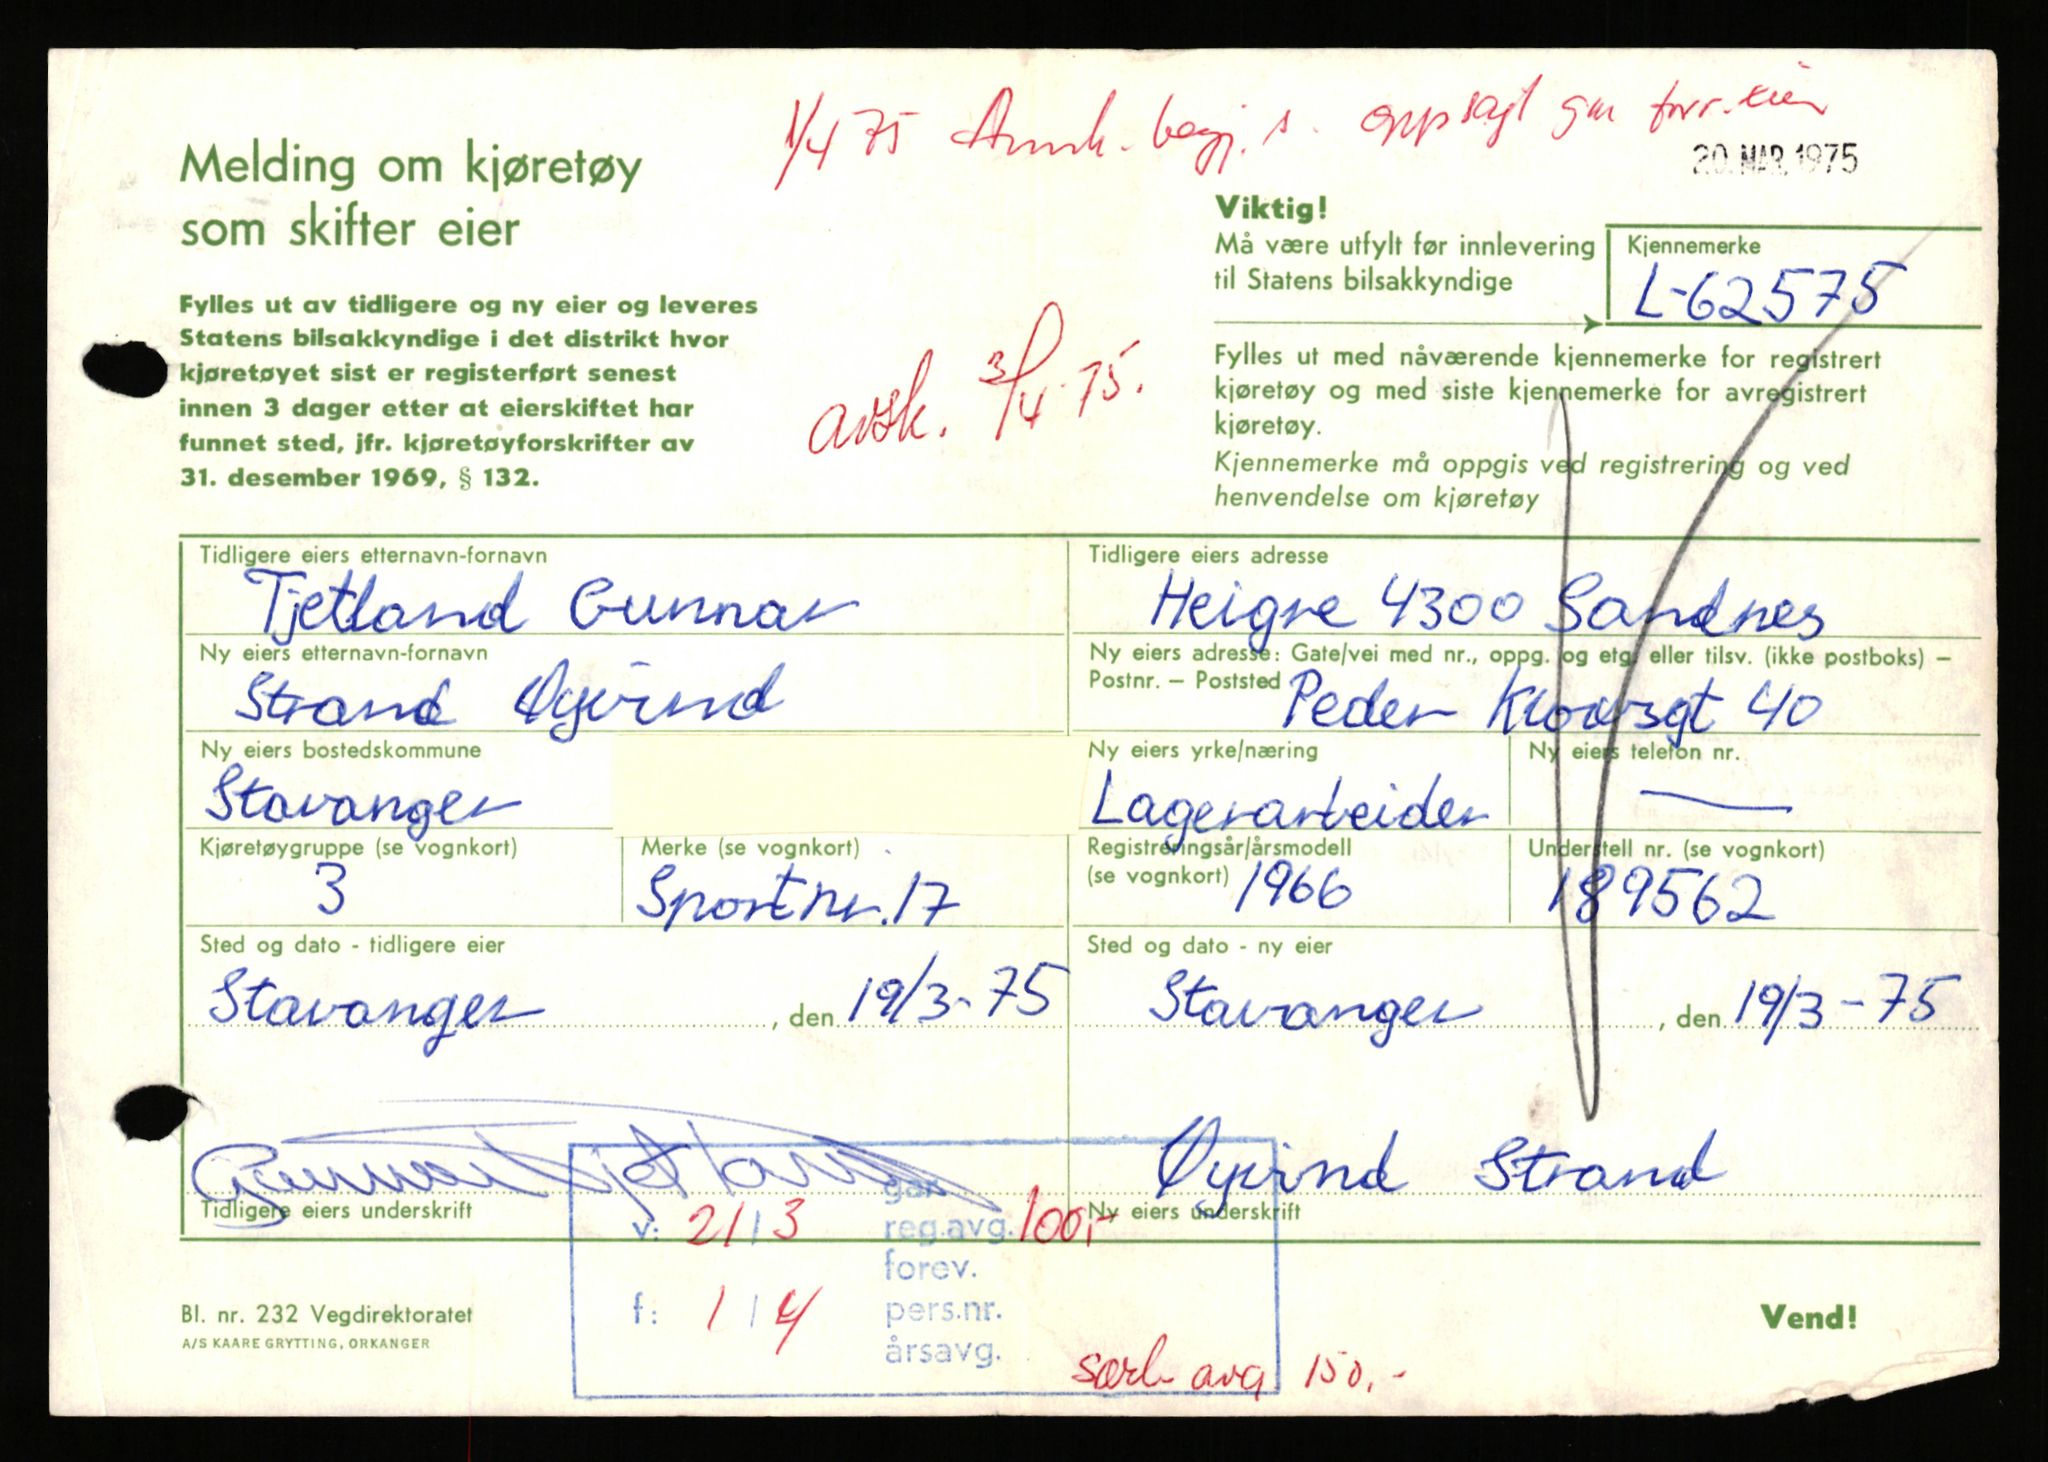 1/4 75 oppsagt forr. eier
20. MAR. 1975
Melding om kjøretøy
som skifter eier
Viktig!
Må være utfylt før innlevering
til Statens bilsakkyndige
Kjennemerke
L-62575
Fylles ut av tidligere og ny eier og leveres
Statens bilsakkyndige i det distrikt hvor
kjøretøyet sist er registerført senest
innen 3 dager etter at eierskiftet har
funnet sted, jfr. kjøretøyforskrifter av
31. desember 1969, § 132.
avsk. 3/4 75.
Fylles ut med nåværende kjennemerke for registrert
kjøretøy og med siste kjennemerke for avregistrert
kjøretøy.
Kjennemerke må oppgis ved registrering og ved
henvendelse om kjøretøy
Tidligere eiers etternavn-fornavn
Tjetland Gunnar
Tidligere eiers adresse
Heigre 4300 Sandnes
Ny eiers etternavn-fornavn
Strand Øyvind
Ny eiers adresse: Gate/vei med nr., oppg. og etg. eller tilsv. (ikke postboks) –
Postnr. – Poststed Peder Klowsgt 40
Ny eiers bostedskommune
Stavanger
Ny eiers yrke/næring
Lagerarbeider
Ny eiers telefon nr.
—
Kjøretøygruppe (se vognkort)
3
Merke (se vognkort)
Sport nr. 17
Registreringsår/årsmodell
(se vognkort) 1966
Understell nr. (se vognkort)
189562
Sted og dato - tidligere eier
Stavanger, den 19/3-75
Sted og dato - ny eier
Stavanger, den 19/3-75
Gunnar Tjetland
Tidligere eiers underskrift
Øyvind Strand
Ny eiers underskrift
gar.
v: 21/3 reg.avg. 100,-
forev.
f: 1/4 pers.nr.
årsavg.
avg 150,-
Bl. nr. 232 Vegdirektoratet
A/S KAARE GRYTTING, ORKANGER
Vend!